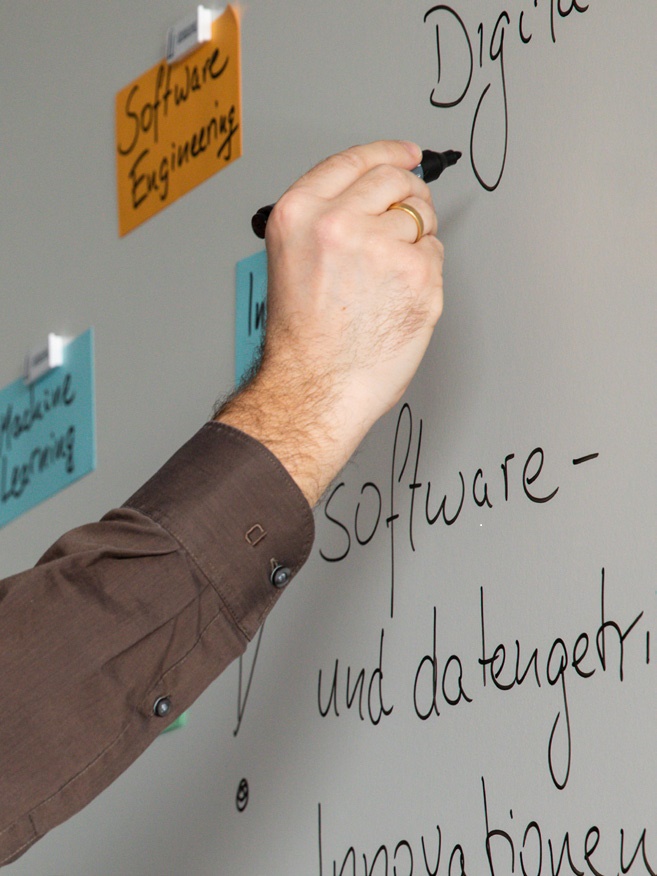 Software
Engineering
In
Machine
Learning
Digita
software-
und datengetri
Innovationen
!